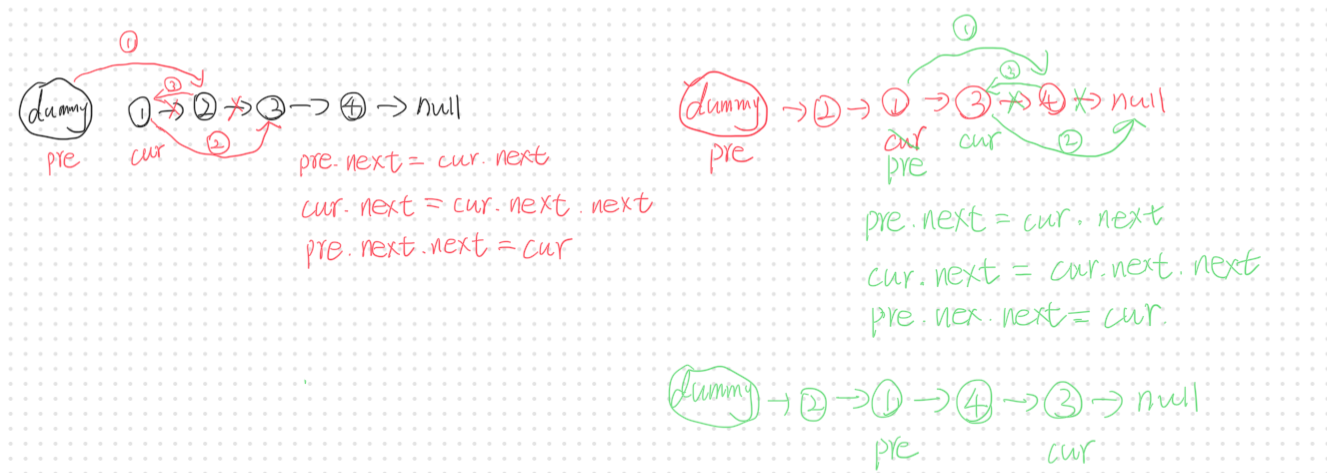 ①
③
dummy ① → ② → ③ → ④ → null
②
pre cur
pre.next = cur.next
cur.next = cur.next.next
pre.next.next = cur
①
③
dummy → ② → ① → ③ → ④ → null
②
pre cur cur
pre
pre.next = cur.next
cur.next = cur.next.next
pre.nex.next = cur.
dummy → ② → ① → ④ → ③ → null
pre cur